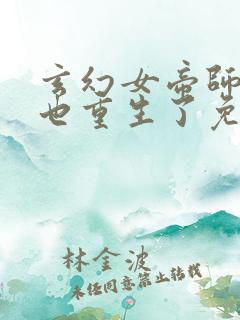 玄幻女帝师
也重生了免
林金波
未经同意禁止转载